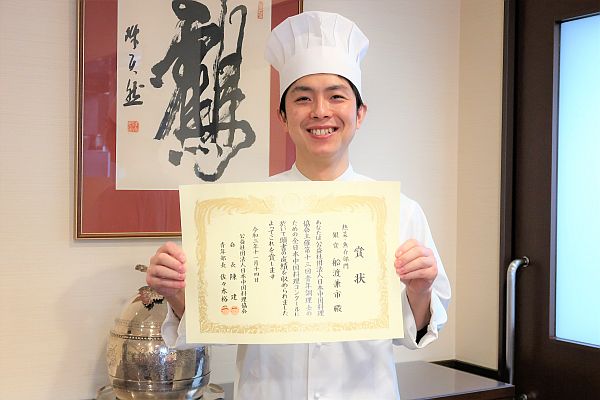 賞状
熱菜・魚介部門
銀賞 船渡兼市 殿
あなたは公益社団法人日本中国料理
協会主催第十二回青年調理士の
ための全日本中国料理コンクールに
於いて頭書の成績を収められました
よってこれを賞します
令和三年十一月十四日
公益社団法人日本中国料理協会
会長 陳 建一
青年部長 佐々木 裕